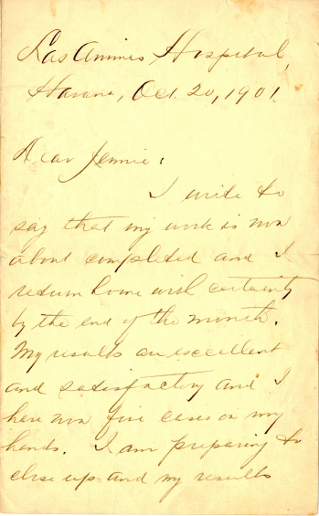 Las Animas Hospital,
Havana, Oct. 20, 1901.
Dear Jennie:
I write to
say that my work is now
about completed and I
return home with certainty
by the end of the month.
My results are excellent
and satisfactory and I
have now five cases on my
hands. I am preparing to
close up and my results